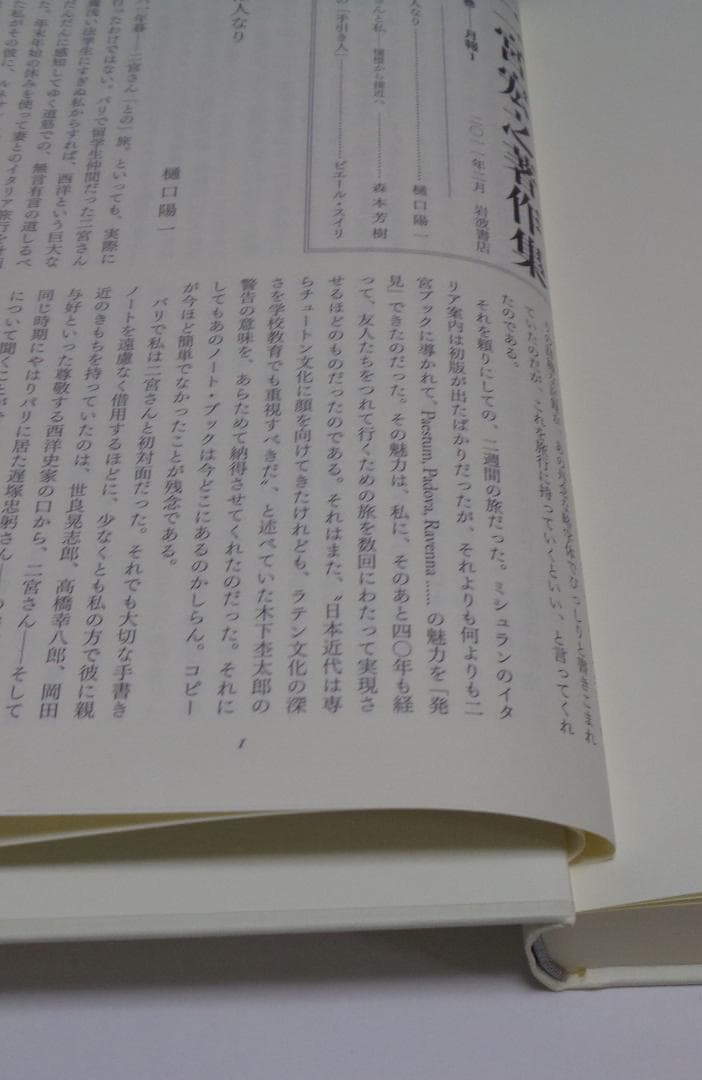 宮宏之著作集
月報1
二〇一一年二月　岩波書店
人なり……………樋口陽一
さんと私――憧憬から接近へ――……森本芳樹
の「手引き人」……ピエール・スイリ
人なり
樋口陽一
年暮――二宮さん「との」旅。といっても、実際に
行ったわけではない。パリで留学生仲間だった二宮さん
浅い法学生にすぎぬ私からすれば、西洋という巨大な
だんだんに感知してゆく道筋での、無言有言の道しるべ
た。年末年始の休みを使って妻とのイタリア旅行を
ていたのだが、これを旅行に持っていくといい、と言ってくれ
たのである。
それを頼りにしての、二週間の旅だった。ミシュランのイタ
リア案内は初版が出たばかりだったが、それよりも何よりも二
宮ブックに導かれて、Paestum, Padova, Ravenna……の魅力を「発
見」できたのだった。その魅力は、私に、そのあと四〇年も経
って、友人たちをつれて行くための旅を数回にわたって実現さ
せるほどのものだったのである。それはまた、“日本近代は専
らチュートン文化に顔を向けてきたけれども、ラテン文化の深
さを学校教育でも重視すべきだ”、と述べていた木下杢太郎の
警告の意味を、あらためて納得させてくれたのだった。それに
してもあのノート・ブックは今どこにあるのかしらん。コピー
が今ほど簡単でなかったことが残念である。
パリで私は二宮さんと初対面だった。それでも大切な手書き
ノートを遠慮なく借用するほどに、少なくとも私の方で彼に親
近のきもちを持っていたのは、世良晃志郎、高橋幸八郎、岡田
与好といった尊敬する西洋史家の口から、二宮さん――そして
同じ時期にやはりパリに居た遅塚忠躬さん――の
について聞くことが
1